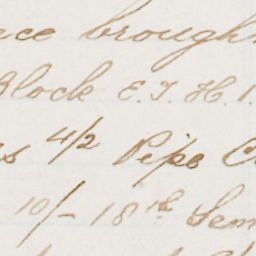 ece brough
Block E. T. H. 1.
s 4/2 Pipe C
10/- 18th Sem